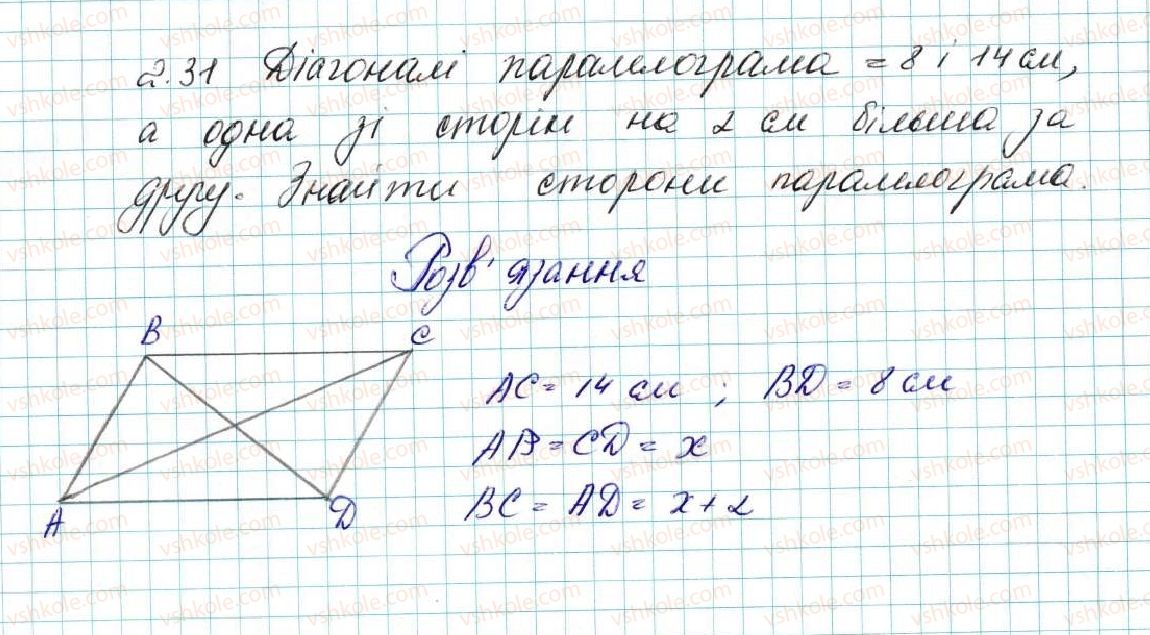 2.31 Діагоналі паралелограма = 8 і 14 см,
а одна зі сторін на 2 см більша за
другу. Знайти сторони паралелограма.
Розв'язання
B
C
AC = 14 см ; BD = 8 см
AB = CD = x
BC = AD = x + 2
A
D
vshkole.com